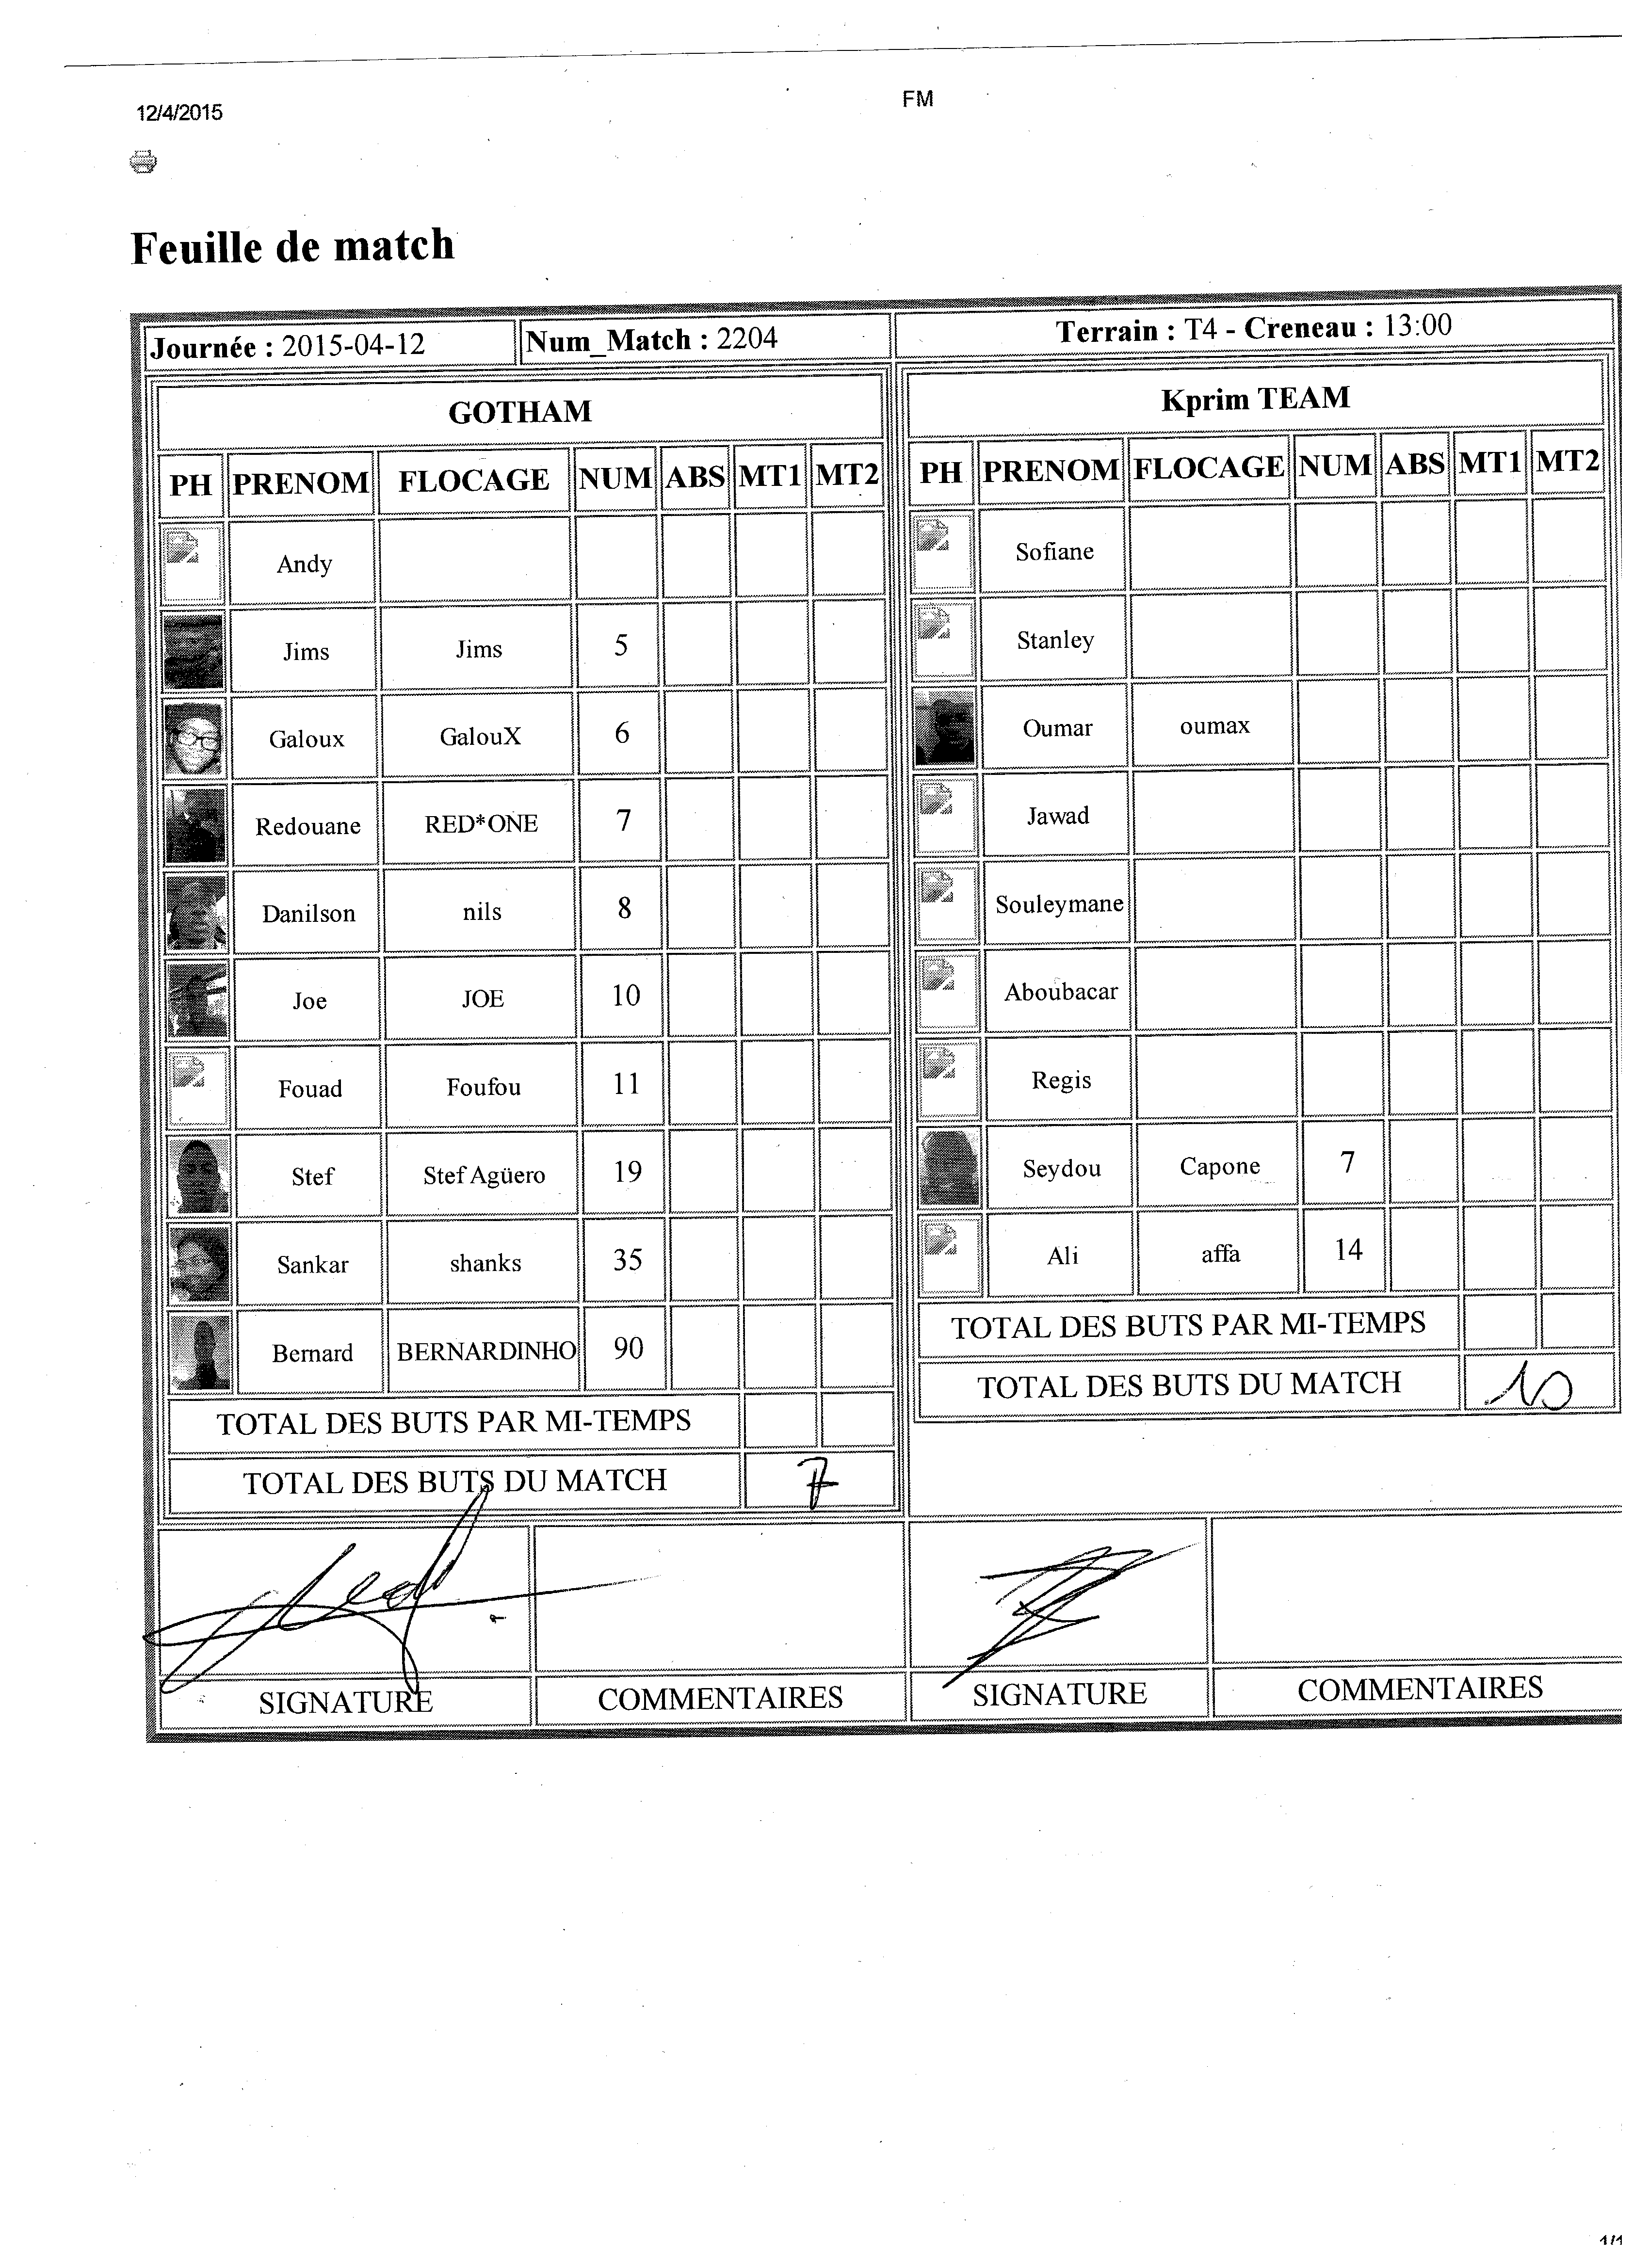 12/4/2015
FM
Feuille de match
Journée : 2015-04-12 Num_Match : 2204 Terrain : T4 - Creneau : 13:00
GOTHAM
PH PRENOM FLOCAGE NUM ABS MT1 MT2
Andy
Jims Jims 5
Galoux GalouX 6
Redouane RED*ONE 7
Danilson nils 8
Joe JOE 10
Fouad Foufou 11
Stef Stef Agüero 19
Sankar shanks 35
Bernard BERNARDINHO 90
TOTAL DES BUTS PAR MI-TEMPS
TOTAL DES BUTS DU MATCH 7
Kprim TEAM
PH PRENOM FLOCAGE NUM ABS MT1 MT2
Sofiane
Stanley
Oumar oumax
Jawad
Souleymane
Aboubacar
Regis
Seydou Capone 7
Ali affa 14
TOTAL DES BUTS PAR MI-TEMPS
TOTAL DES BUTS DU MATCH 10
SIGNATURE COMMENTAIRES SIGNATURE COMMENTAIRES
1/1